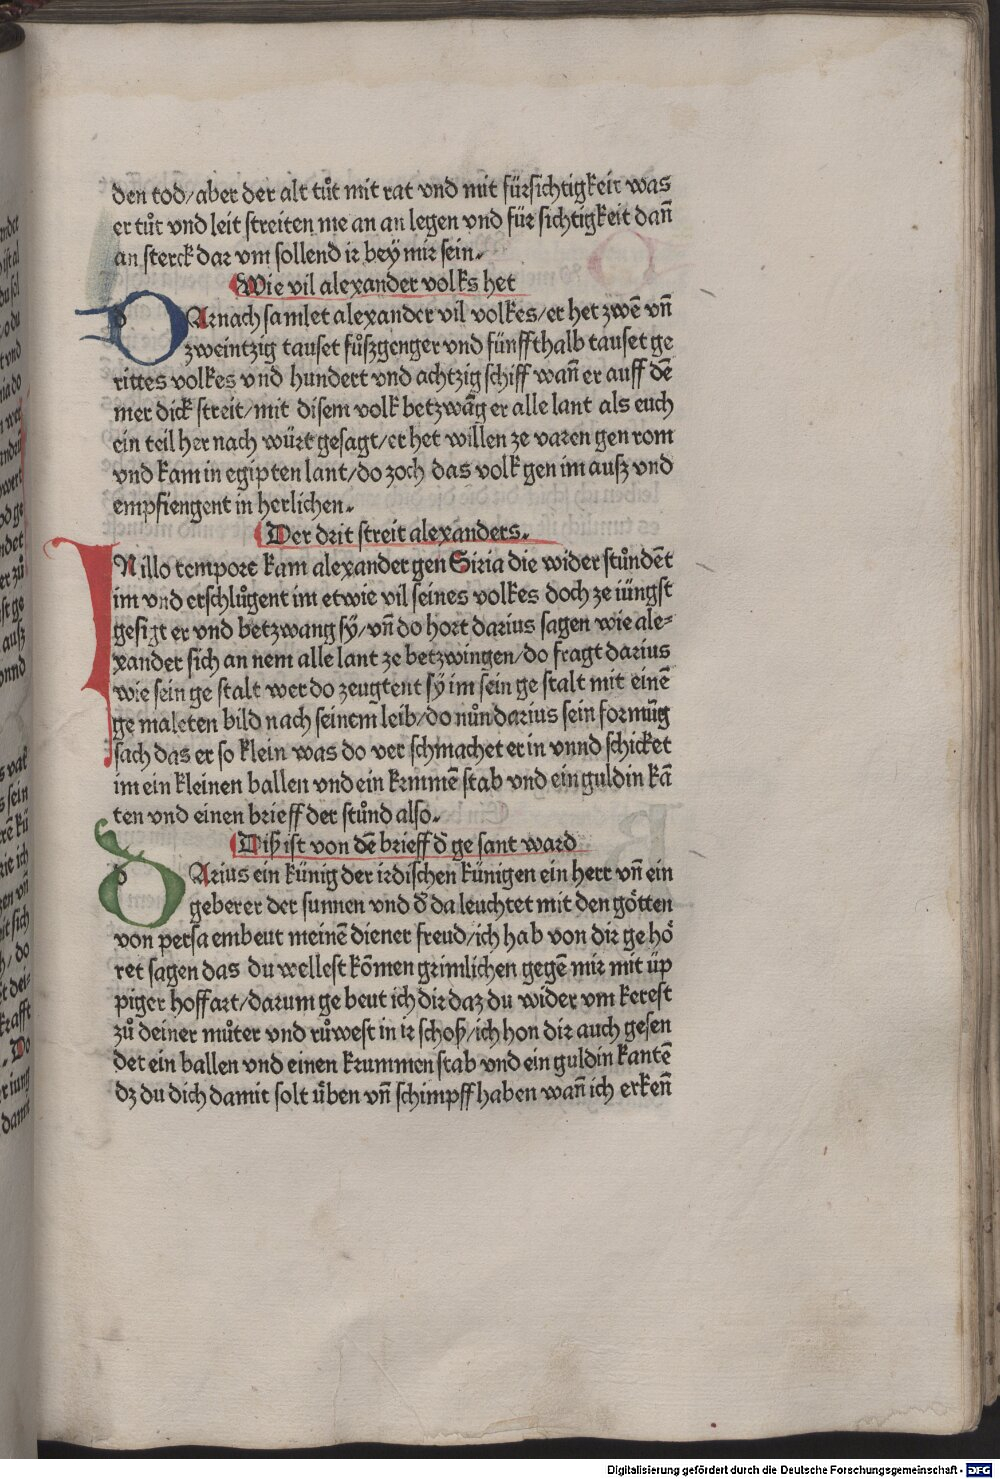 den tod/aber der alt tůt mit rat vnd mit fürsichtigkeit was
er tůt vnd leit streiten me an an legen vnd für sichtigkeit dañ
an sterck dar vm sollend ir beÿ mir sein.
Wie vil alexander volks het
DArnach samlet alexander vil volkes/er het zwẽ vñ
zweintzig tauset fůszgenger vnd fünffthalb tauset ge
rittes volkes vnd hundert vnd achtzig schiff wañ er auff dẽ
mer dick streit/mit disem volk betzwãg er alle lant als euch
ein teil her nach würt gesagt/er het willen ze varen gen rom
vnd kam in egipten lant/do zoch das volk gen im ausz vnd
empfiengent in herlichen.
Der drit streit alexanders.
IN illo tempore kam alexander gen Siria die wider stůndẽt
im vnd erschlůgent im etwie vil seines volkes doch ze iüngst
gesigt er vnd betzwang sÿ/vñ do hort darius sagen wie ale-
xander sich an nem alle lant ze betzwingen/do fragt darius
wie sein ge stalt wer do zeugtent sÿ im sein ge stalt mit einẽ
ge maleten bild nach seinem leib/do nůn darius sein formũg
sach das er so klein was do ver schmachet er in vnnd schicket
im ein kleinen ballen vnd ein krummẽ stab vnd ein guldin kã
ten vnd einen brieff der stůnd also.
Diß ist von dẽ brieff d̕ ge sant ward
DArius ein künig der irdischen künigen ein herr vñ ein
geberer der sunnen vnd d̕ da leuchtet mit den götten
von persa embeut meinẽ diener freud/ich hab von dir ge hö
ret sagen das du wellest kõmen grimlichen gegẽ mir mit üp
piger hoffart/darum ge beut ich dir daz du wider vm kerest
zů deiner můter vnd růwest in ir schoß/ich hon dir auch gesen
det ein ballen vnd einen krummen stab vnd ein guldin kantẽ
dz du dich damit solt üben vñ schimpff haben wañ ich erkeñ
Digitalisierung gefördert durch die Deutsche Forschungsgemeinschaft - DFG